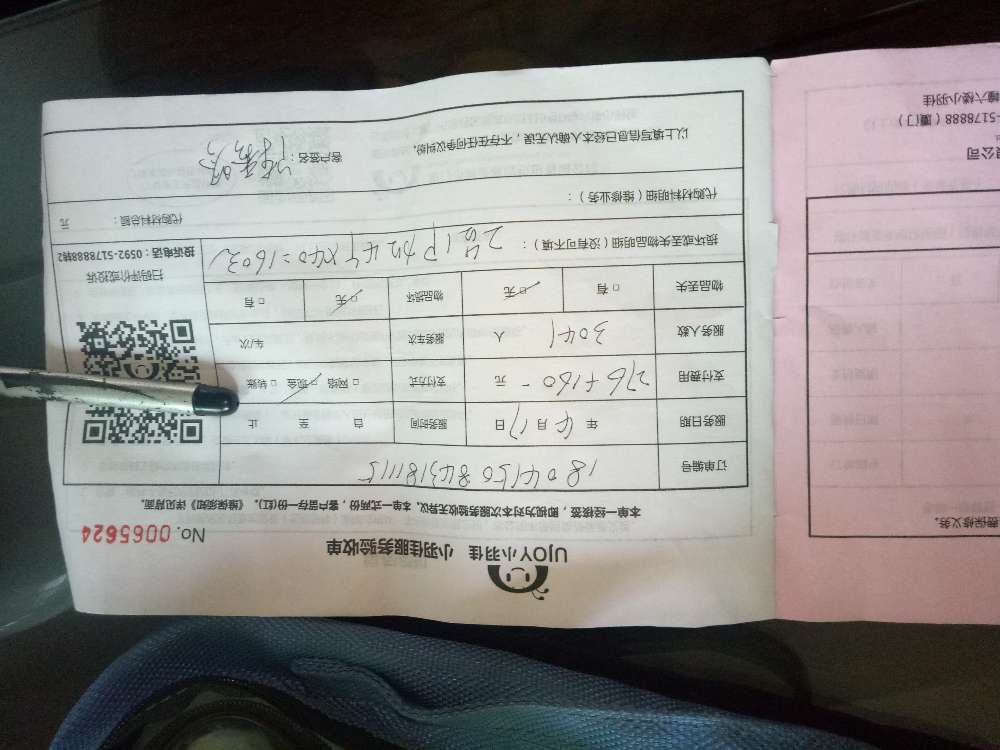 UJOY小羽佳 小羽佳服务验收单
No. 0065624
本单一经核签，即视为对本次服务验收无异议，本单一式两份，客户留存一份(红)，《维保须知》详见背面。
订单编号
服务日期 年 4月17日 服务时间 自 至 止
支付费用 276+160- 元 支付方式 □网络 □现金 □转账
服务人数 人 服务车次 车/次
物品丢失 □有 □无 物品损坏 □有 □无
扫码评价或投诉
投诉电话：0592-5178888转2
损坏或丢失物品明细（没有可不填）：
代购材料明细（维修业务）：
代购材料总额： 元
以上填写信息已经本人确认无误，不存在任何争议纠纷。
客户签名：
费保修义务。
限公司
-5178888（厦门）
幢六楼小羽佳